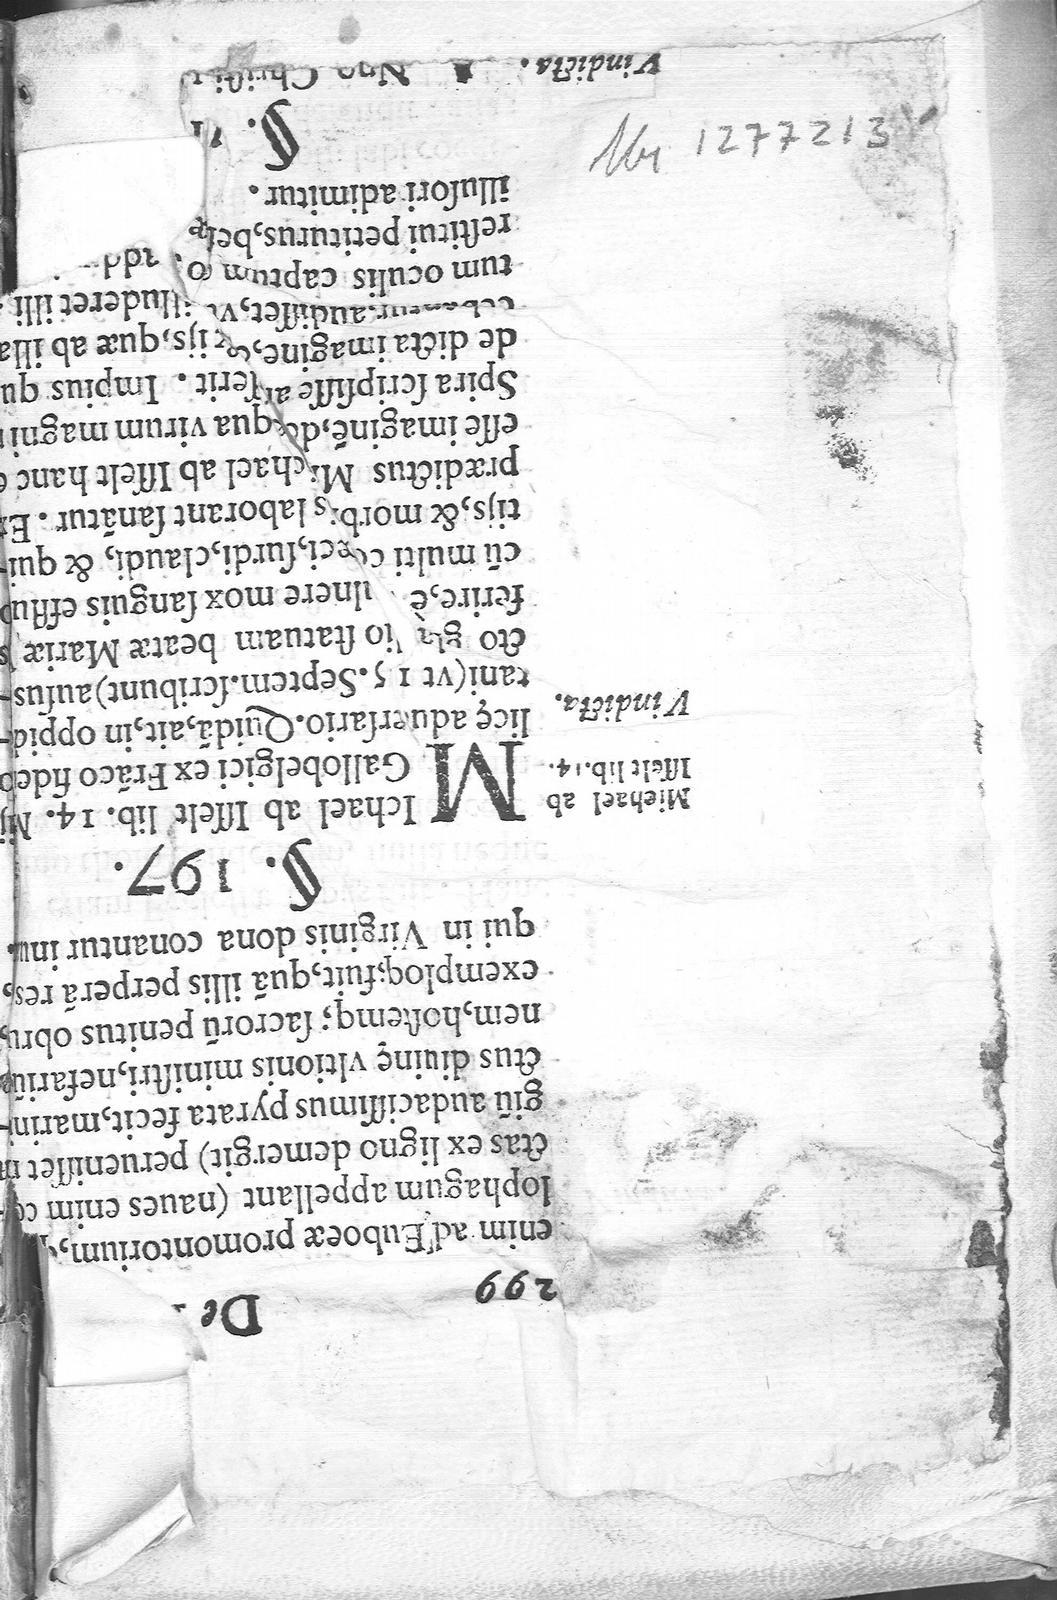 299 De
enim ad Eubœæ promontorium,
lophagum appellant (naues enim
ctas ex ligno demergit) peruenisset
giũ audacissimus pyrata fecit, marin-
ctus diuinę vltionis ministri, nefariũ
nem, hostemq; sacrorũ penitus obru
exemploq; fuit, quã illis perperã res,
qui in Virginis dona conantur inu
§. 197.
Michael ab
Isselt lib. 14.
Vindicta.
MIchael ab Isselt lib. 14.
Gallobelgici ex Frãco fideo
licę aduersario. Quidã, ait, in oppid-
tani (vt 15. Septem. scribunt) ausus
cto statuam beatæ Mariæ
ferire, è mox sanguis efflu
cũ multi cœci, surdi, claudi, & qui-
tijs, & morbis laborant sanãtur. Ex
prædictus Michael ab Isselt hanc
esse imaginẽ, de qua virum magni
Spira scripsisse asserit. Impius qu
de dicta imagine, & ijs, quæ ab illa
audisset, luderet illi
tum oculis captum
restitui petiturus,
illusori adimitur.
§.
Vindicta.
Nno Christi
1277213